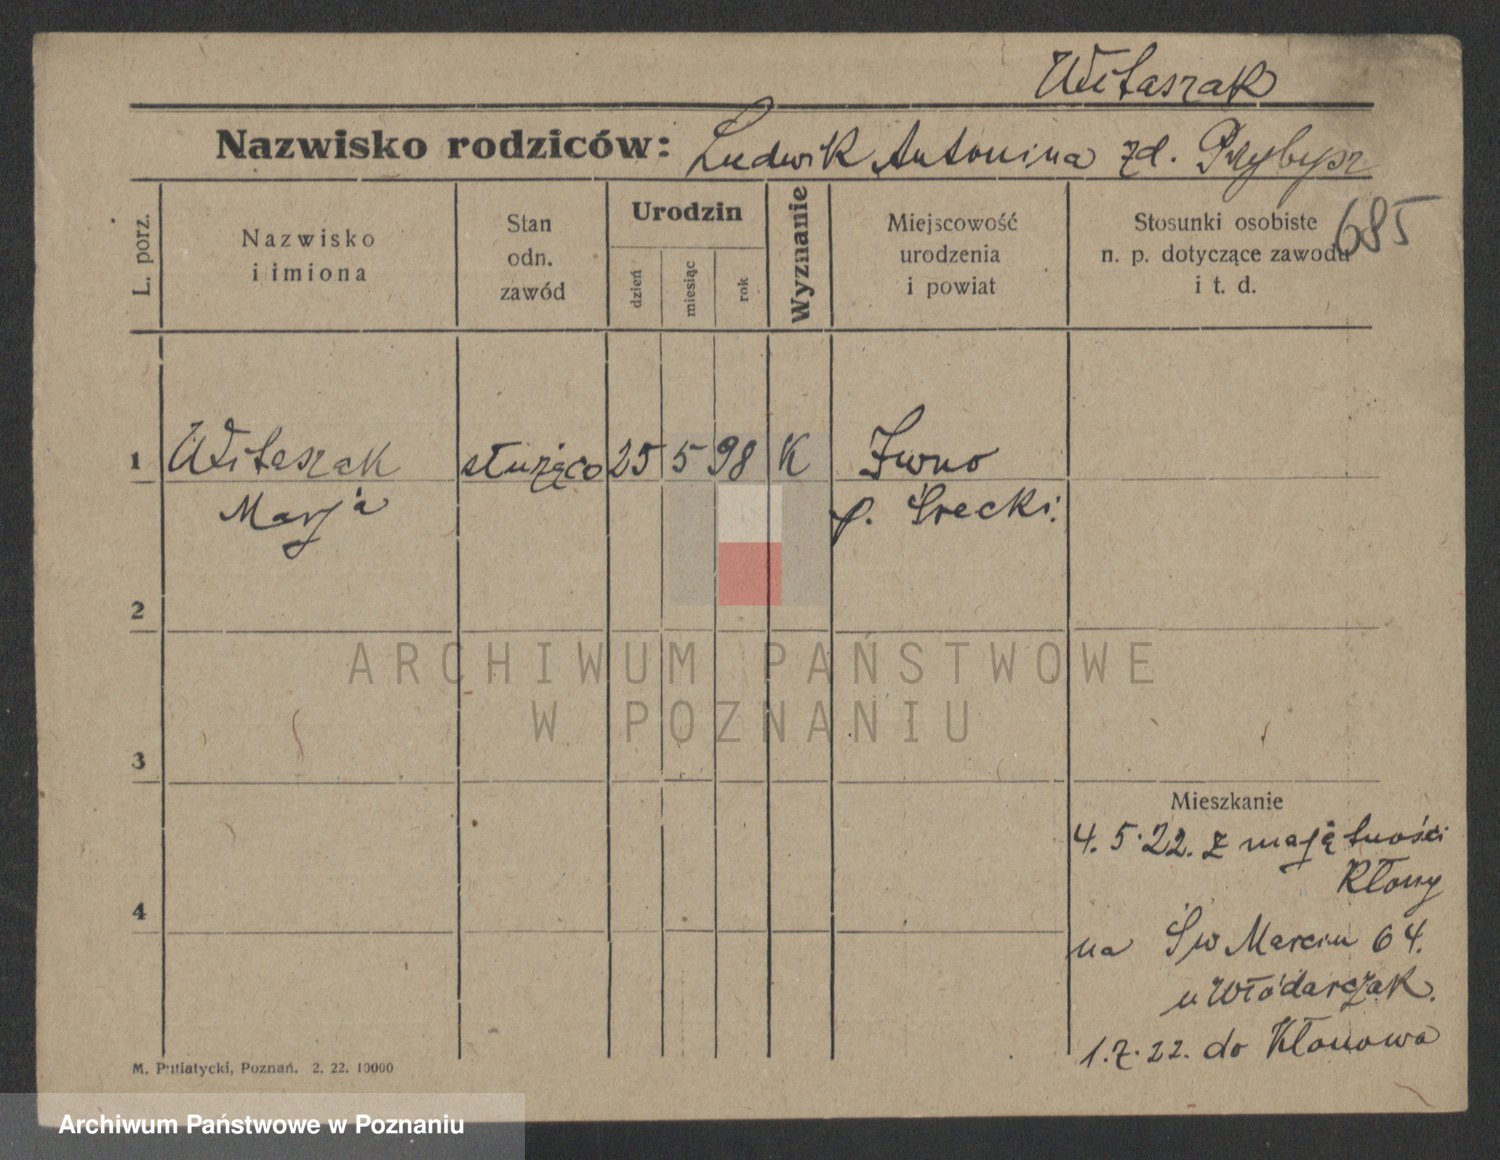 Witaszak
Nazwisko rodziców: Ludwik Antonina zd. Przybysz
685
L. porz.
Nazwisko
i imiona
Stan
odn.
zawód
Urodzin
dzień
miesiąc
rok
Wyznanie
Miejscowość
urodzenia
i powiat
Stosunki osobiste
n. p. dotyczące zawodu
i t. d.
1 Witaszak służąca 25 5 98 K Iwno
Marja p. Śrecki.
2
ARCHIWUM PAŃSTWOWE
W POZNANIU
3
Mieszkanie
4. 5. 22. z majętności
Kłony
4
na Św Marcin 64.
u Włódarczak.
1. 7. 22. do Kłonowa
M. Putiatycki, Poznań. 2. 22. 10000
Archiwum Państwowe w Poznaniu